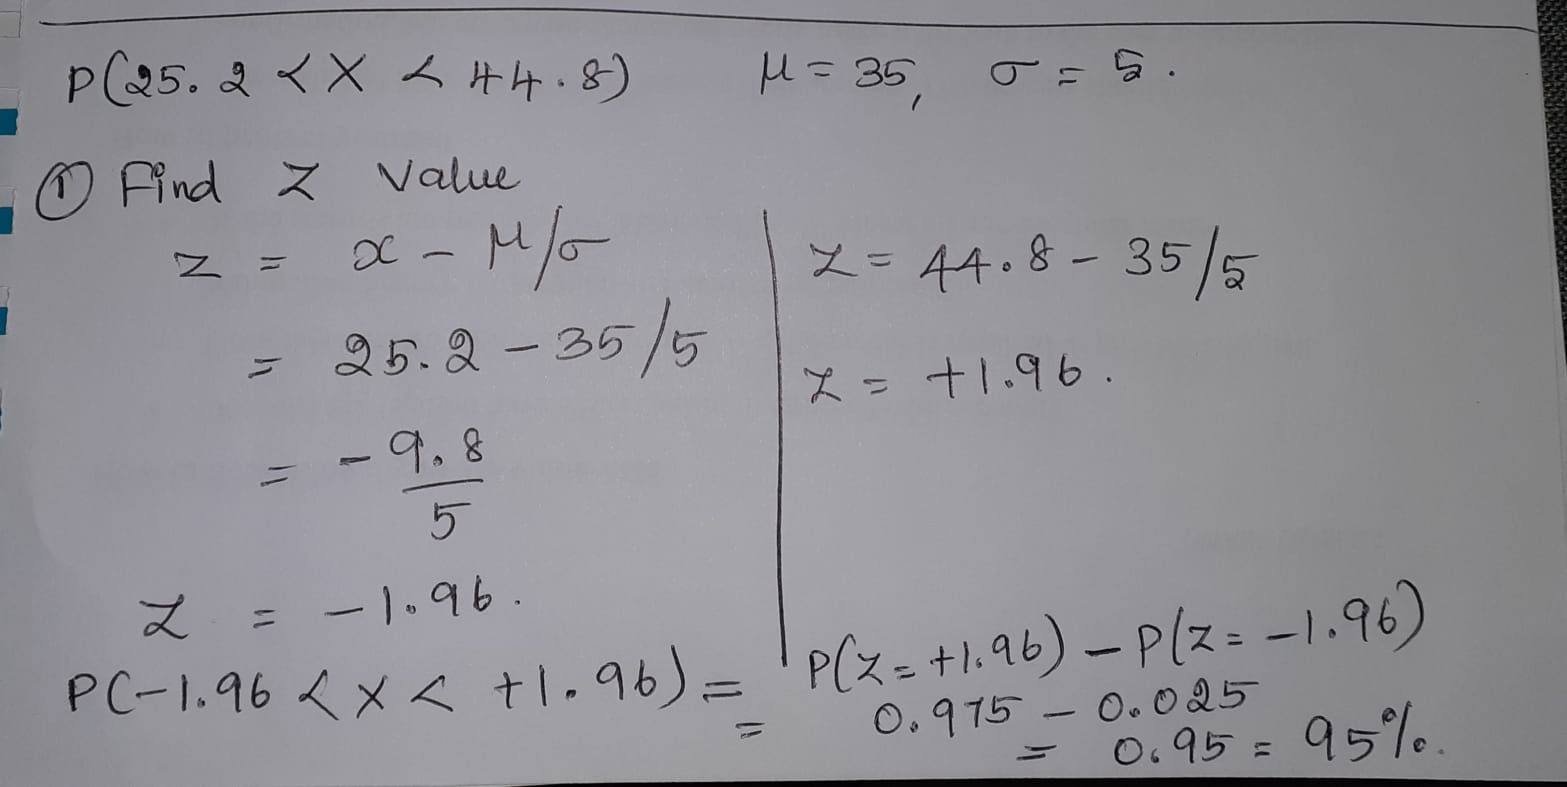 P(25.2 < X < 44.8) μ = 35, σ = 5.
① Find Z Value
z = x - μ/σ
= 25.2 - 35/5
= -9.8/5
Z = -1.96.
Z = 44.8 - 35/5
Z = +1.96.
P(-1.96 < X < +1.96) = P(Z = +1.96) - P(Z = -1.96)
= 0.975 - 0.025
= 0.95 = 95%.